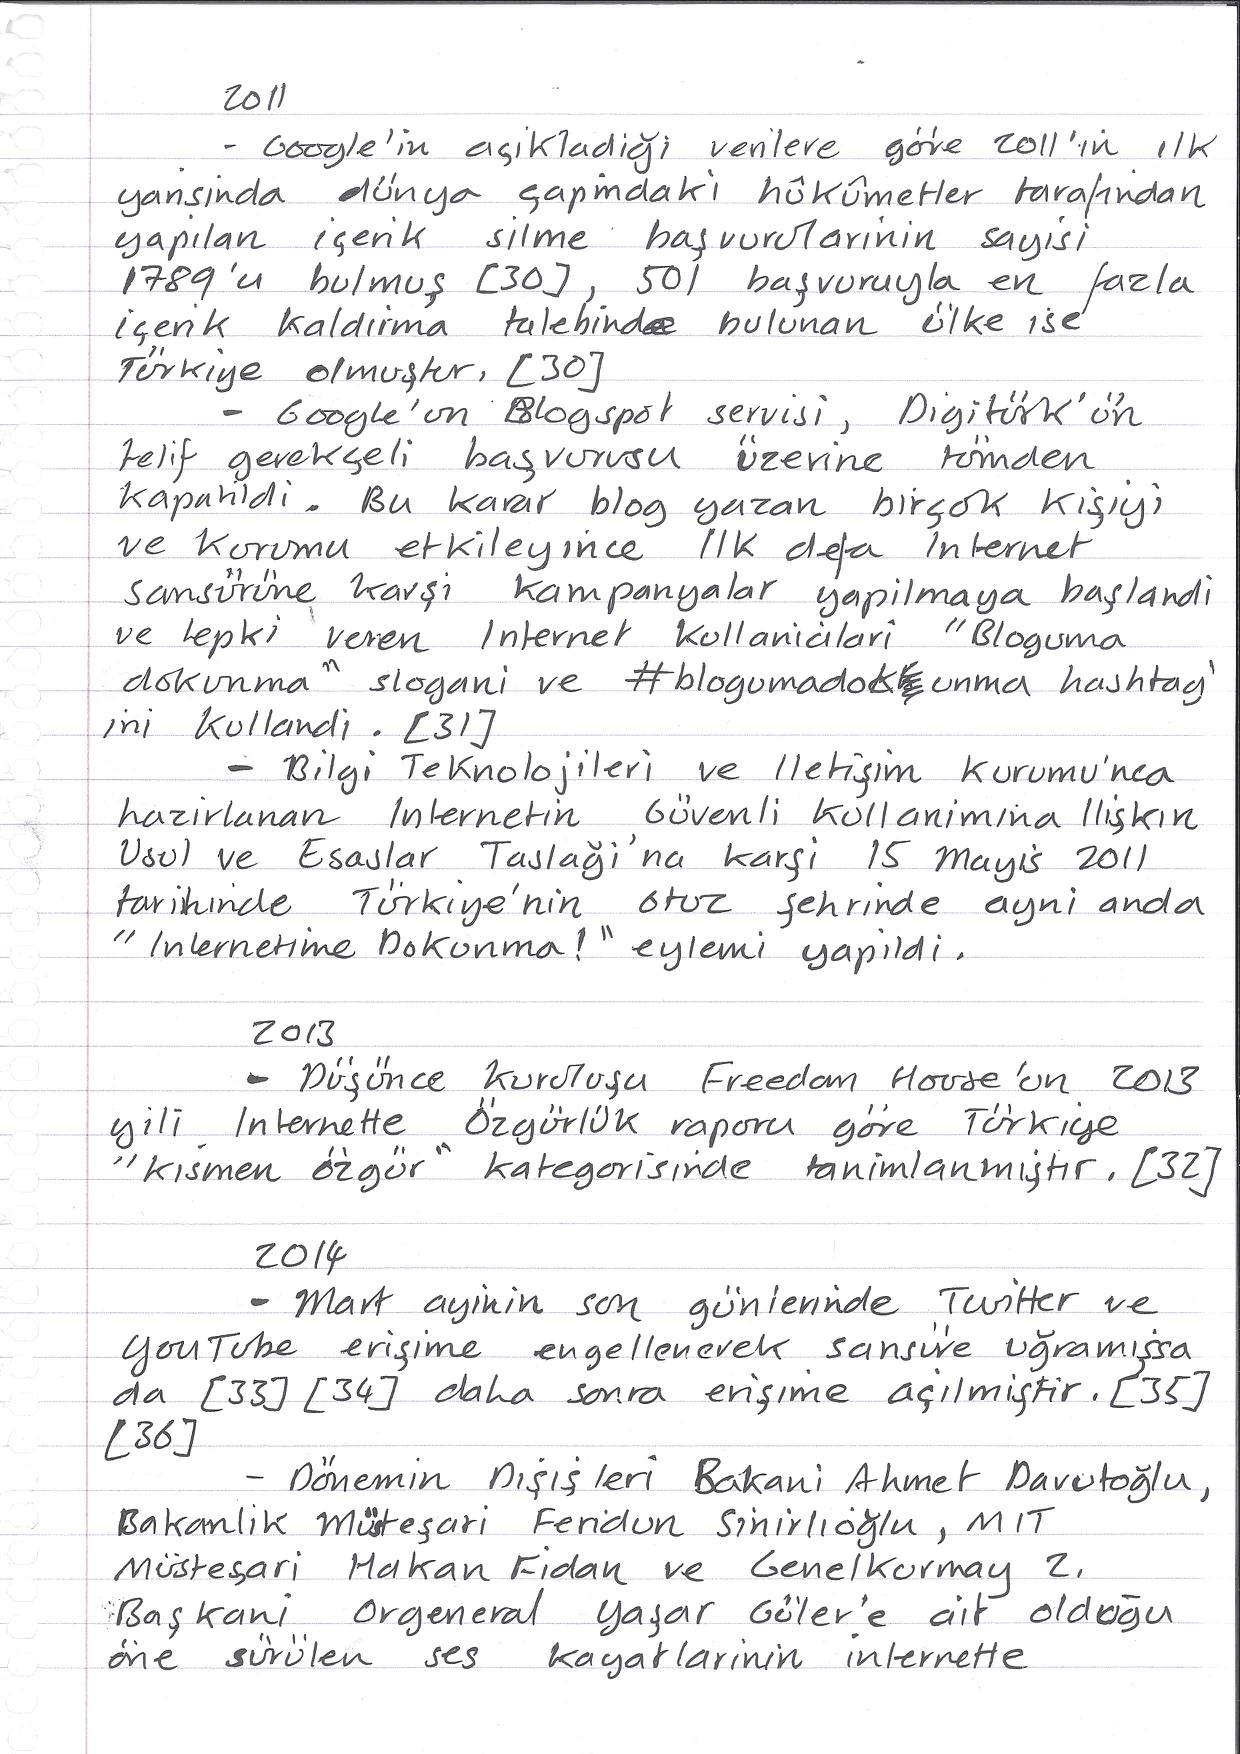 2011
- Google'in açikladiği verilere göre 2011'in ilk
yarisinda dünya çapindaki hûkûmetler tarafından
yapilan içerik silme başvurularinin sayisi
1789'u bulmuş [30], 501 başvuruyla en fazla
içerik kaldirma talebinde bulunan ülke ise
Türkiye olmuştur. [30]
- Google'un Blogspot servisi, Digitürk'ün
telif gerekçeli başvurusu üzerine tümden
kapatildi. Bu karar blog yazan birçok kişiyi
ve kurumu etkileyince ilk defa Internet
sansürüne karşi kampanyalar yapilmaya başlandi
ve tepki veren Internet kullanicilari "Bloguma
dokunma" slogani ve #blogumadokunma hashtag'
ini kullandi. [31]
- Bilgi Teknolojileri ve Iletişim Kurumu'nca
hazirlanan Internetin Güvenli Kullanimina Ilişkin
Usul ve Esaslar Taslaği'na karşi 15 Mayis 2011
tarihinde Türkiye'nin otuz şehrinde ayni anda
"Internetime Dokunma!" eylemi yapildi.
2013
- Düşünce kuruluşu Freedom House'un 2013
yili Internette Özgürlük raporu göre Türkiye
"kismen özgür" kategorisinde tanimlanmiştir. [32]
2014
- Mart ayinin son günlerinde Twitter ve
YouTube erişime engellenerek sansüre uğramişsa
da [33] [34] daha sonra erişime açilmiştir. [35]
[36]
- Dönemin Dişişleri Bakani Ahmet Davutoğlu,
Bakanlik Müsteşari Feridun Sinirlioğlu, MIT
Müsteşari Hakan Fidan ve Genelkurmay 2.
Başkani Orgeneral Yaşar Güler'e ait olduğu
öne sürülen ses kayatlarinin internette